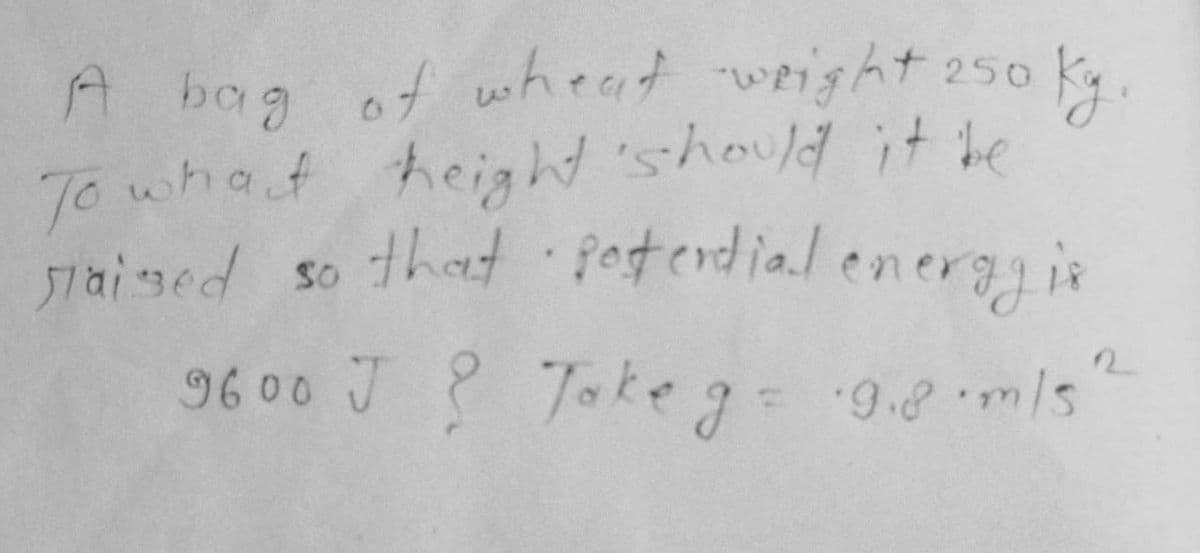 A bag of wheat weight 250 kg.
To what height should it be
raised so that potential energy is
9600 J ? Take g = 9.8 m/s²